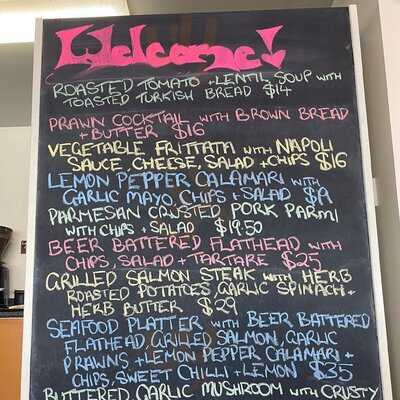 Welcome!
ROASTED TOMATO + LENTIL SOUP WITH
TOASTED TURKISH BREAD $14
PRAWN COCKTAIL WITH BROWN BREAD
+ BUTTER $16
VEGETABLE FRITTATA WITH NAPOLI
SAUCE CHEESE, SALAD + CHIPS $16
LEMON PEPPER CALAMARI WITH
GARLIC MAYO, CHIPS + SALAD
PARMESAN CRUSTED PORK PARMI
WITH CHIPS + SALAD $19.50
BEER BATTERED FLATHEAD WITH
CHIPS, SALAD + TARTARE $25
GRILLED SALMON STEAK WITH HERB
ROASTED POTATOES, GARLIC SPINACH +
HERB BUTTER $29
SEAFOOD PLATTER WITH BEER BATTERED
FLATHEAD, GRILLED SALMON, GARLIC
PRAWNS + LEMON PEPPER CALAMARI +
CHIPS, SWEET CHILLI + LEMON $35
BUTTERED GARLIC MUSHROOM WITH CRUSTY